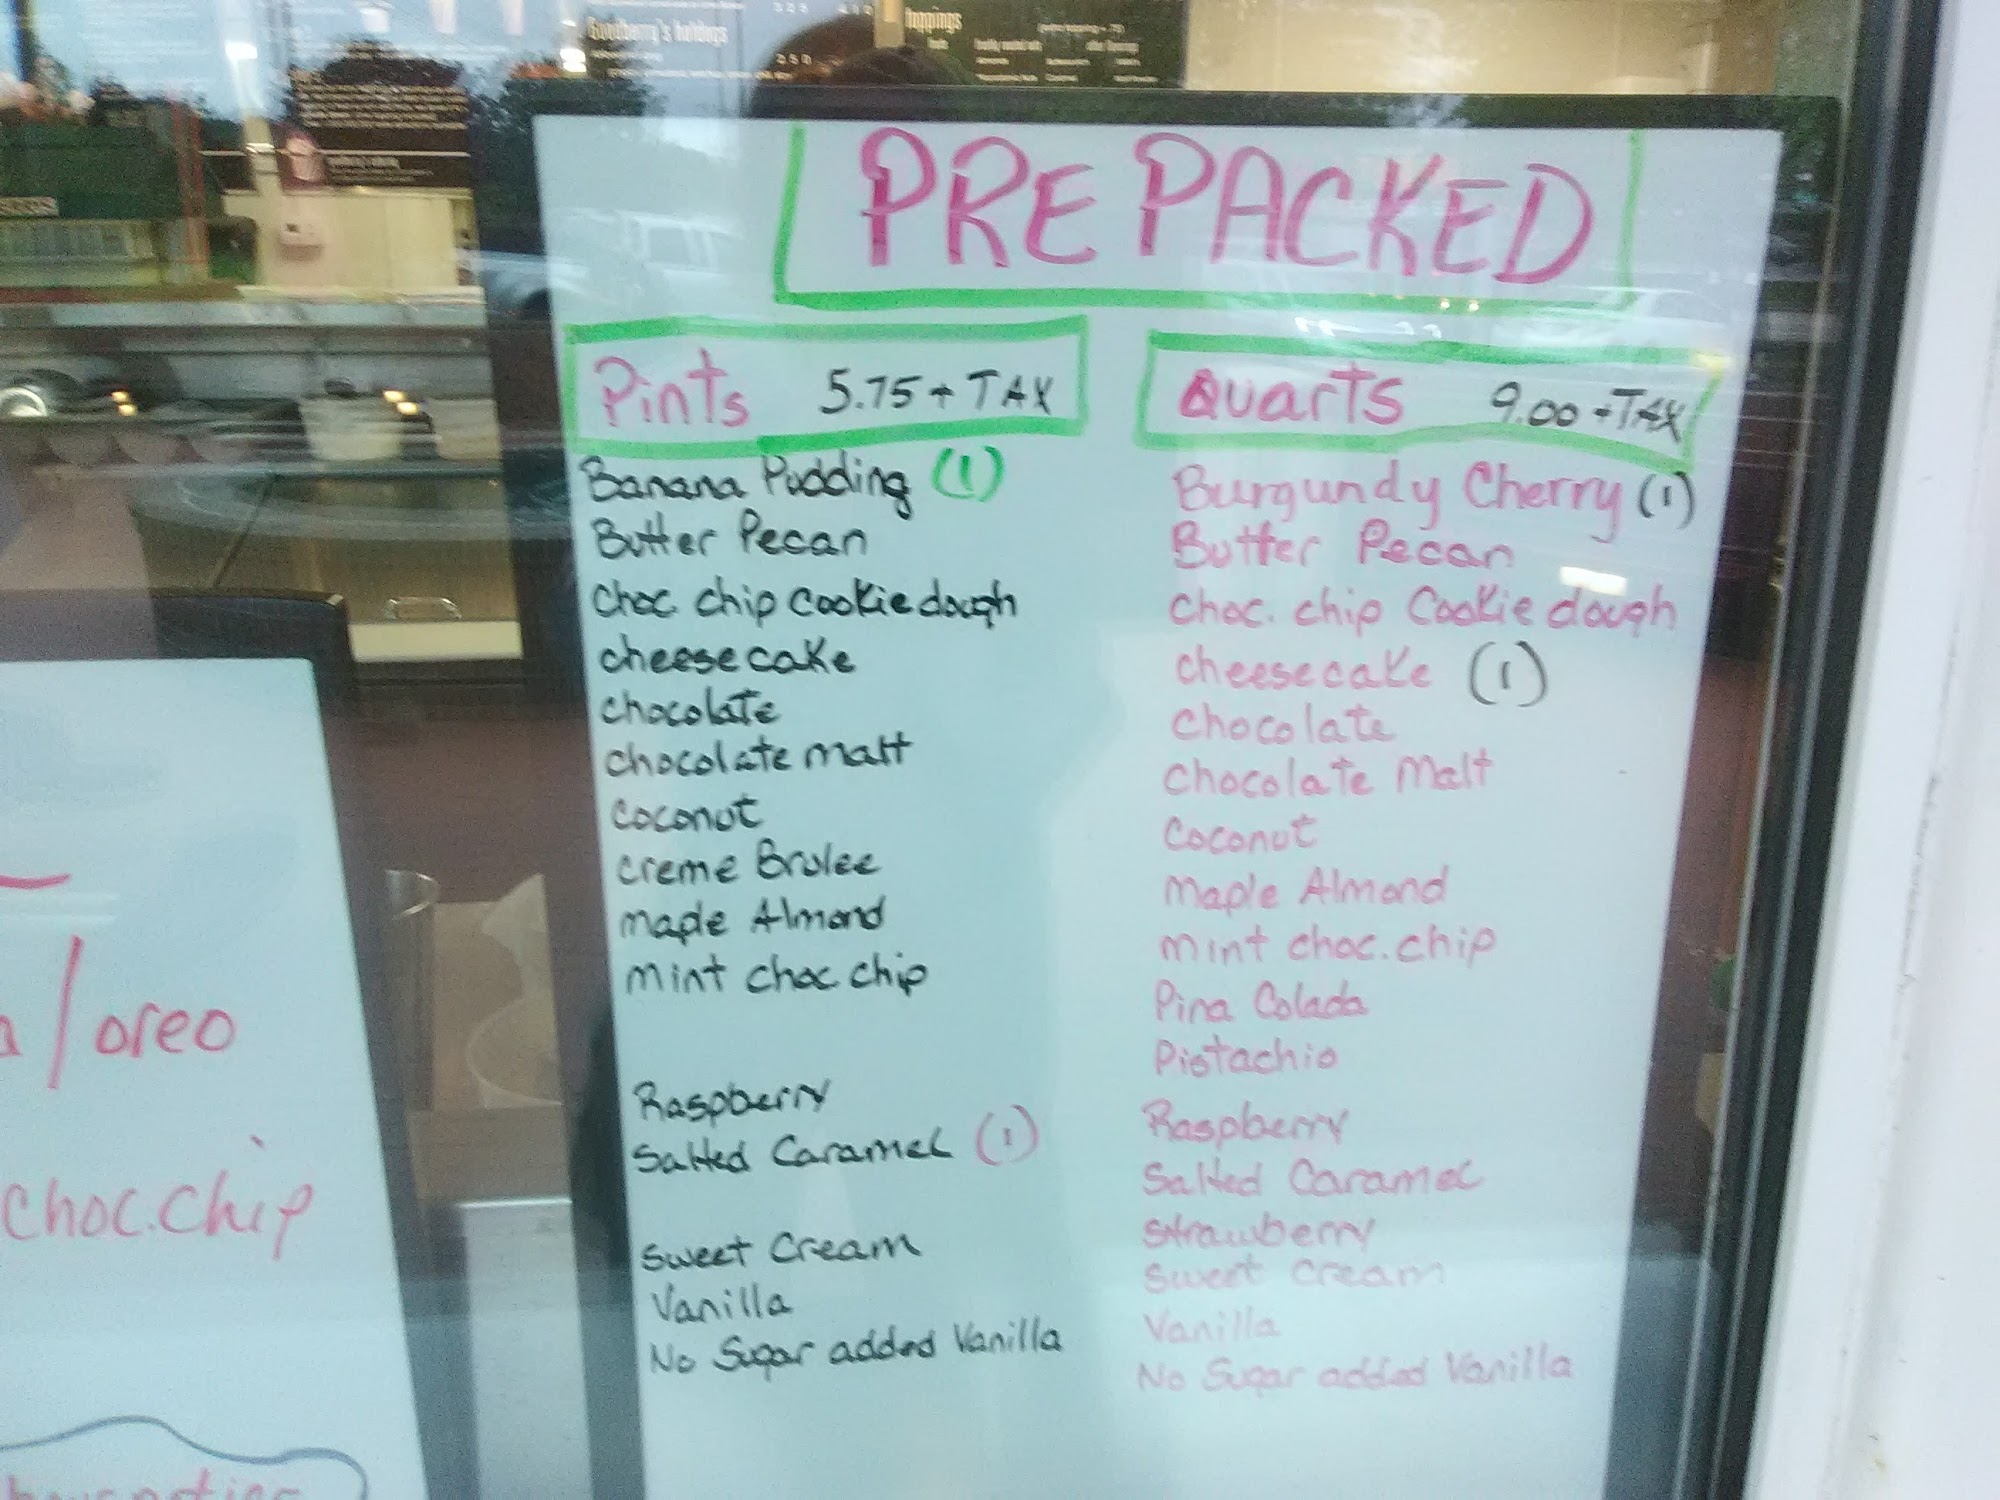 Goodberry's holdings
toppings
PREPACKED
Pints 5.75 + TAX
Banana Pudding (1)
Butter Pecan
Choc. chip Cookie dough
cheesecake
chocolate
chocolate malt
coconut
creme Brulee
maple Almond
mint choc.chip
Raspberry
Salted Caramel (1)
Sweet Cream
Vanilla
No Sugar added Vanilla
Quarts 9.00 + TAX
Burgundy Cherry (1)
Butter Pecan
Choc. chip Cookie dough
cheesecake (1)
Chocolate
Chocolate Malt
Coconut
Maple Almond
mint choc.chip
Pina Colada
Pistachio
Raspberry
Salted Caramel
Strawberry
Sweet Cream
Vanilla
No Sugar added Vanilla
/oreo
Choc.chip